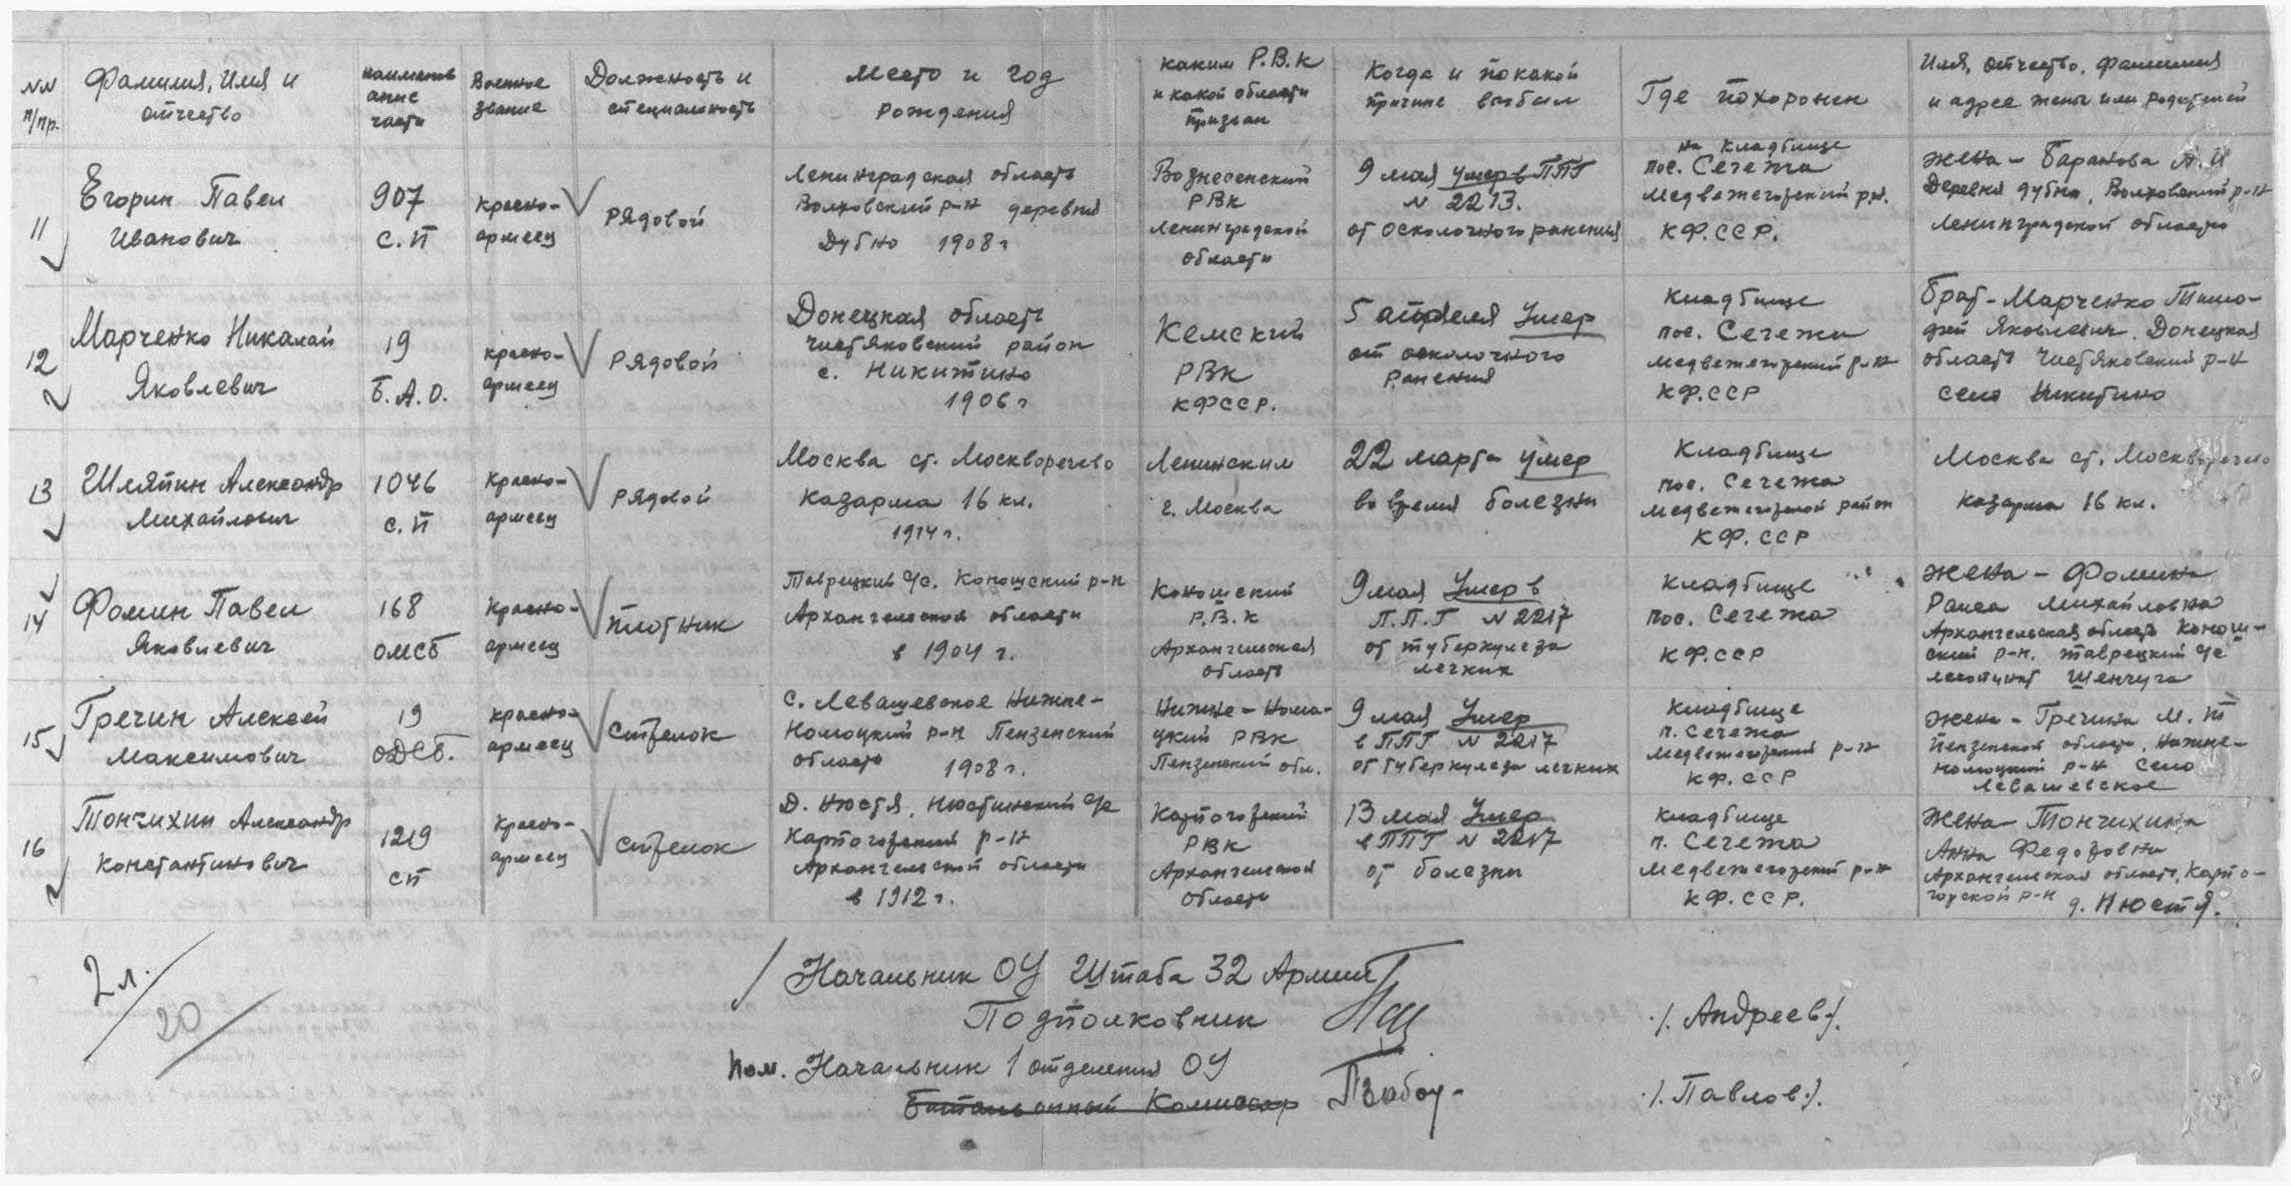 NN п/пр.
Фамилия, Имя и отчество
наименование части
Военное звание
Должность и специальность
место и год рождения
каким Р.В.К и какой области призван
Когда и по какой причине выбыл
Где похоронен
Имя, отчество, фамилия и адрес жены или родителей
11
Егорин Павел
Иванович
907
с.п
красно-
армеец
рядовой
Ленинградская область
Волховский р-н деревня
Дубно 1908 г
Вознесенский
РВК
Ленинградской
области
9 мая умер в ППГ
N 2213.
от осколочного ранения
на кладбище
пос. Сегежа
медвежегорский рн.
КФ.ССР.
жена - Баранова А. И
Деревня дубно, Волховский р-н
Ленинградской области
12
Марченко Николай
Яковлевич
19
Б.А.О.
красно-
армеец
Рядовой
Донецкая область
чистяковский район
с. Никитино
1906 г
Кемский
РВК
КФССР.
5 апреля умер
от осколочного
ранения
Кладбище
пос. Сегежи
медвежегорский р-н
КФ.ССР
брат - Марченко Тимо-
фей Яковлевич. Донецкая
область Чистяковский р-н
село Никитино
13
Шляпин Александр
Михайлович
1046
с.п
Красно-
армеец
рядовой
Москва ст. Москворечево
Казарма 16 кл.
1914 г.
Ленинским
г. Москва
22 марта умер
во время болезни
Кладбище
пос. Сегежа
медвежегорской район
КФ.ССР
Москва ст. Москворечево
казарма 16 кл.
14
Фомин Павел
Яковлевич
168
ОМСБ
Красно-
армеец
плотник
Таврецкий с/с. Коношский р-н
Архангельской области
в 1904 г.
Коношский
Р.В.К
Архангельская
область
9 мая Умер в
П.П.Г N 2217
от туберкулеза
легких
кладбище
пос. Сегежа
КФ.ССР
жена - Фомина
Раиса Михайловна
Архангельская область Конош-
ский р-н. таврецкий с/с
лесопункт Шенчуга
15
Гречин Алексей
Максимович
19
ОДСБ.
красно-
армеец
Стрелок
с. Левашевское Нижне-
Ломоцкий р-н Пензенский
область 1908 г.
Нижне-Лома-
цкий РВК
Пензенский обл.
9 мая Умер
в ППГ N 2217
от туберкулеза легких
кладбище
п. Сегежа
медвежегорский р-н
КФ.ССР
жена - Гречина М. Т
Пензенской область, Нижне-
ломоцкий р-н село
Левашевское
16
Тончихин Александр
Константинович
1219
сп
Красно-
армеец
стрелок
Д. Нюстя, Нюстинский с/с
Карпогорский р-н
Архангельской области
в 1912 г.
Карпогорский
РВК
Архангельской
область
13 мая Умер
в ППГ N 2217
от болезни
кладбище
п. Сегежа
медвежегорский р-н
КФ.ССР.
Жена Тончихина
Анна Федоровна
Архангельская область, Карпо-
горской р-н д. Нюстя.
2 л.
20
Начальник ОУ Штаба 32 Армии
Подполковник
./. Андреев ./.
пом. Начальник 1 отделения ОУ
Батальонный Комиссар
./. Павлов ./.